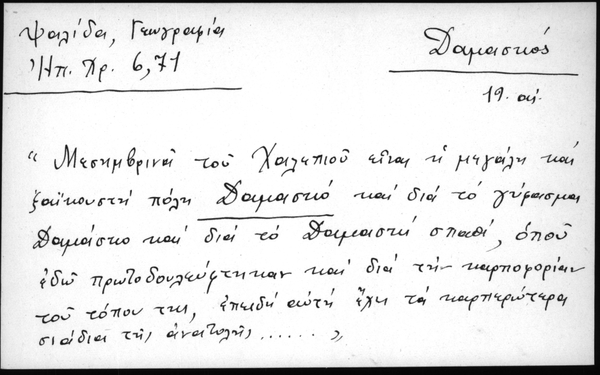 Ψαλίδα, Γεωγραφία
Ἠπ. Χρ. 6,71
Δαμασκός
19. αἰ.
“ Μεσημβρινὰ τοῦ Χαλεπιοῦ εἶναι ἡ μεγάλη καὶ
ξακουστὴ πόλη Δαμασκὸ καὶ διὰ τὸ γύφασμα
Δαμάσκο καὶ διὰ τὸ Δαμασκὶ σπαθί, ὁποῦ
ἐδῶ πρωτοδουλεύφτηκαν καὶ διὰ τὴν καρποφορίαν
τοῦ τόπου της, ἐπειδὴ αὐτὴ ἔχει τὰ καρπερώτερα
σιάδια τῆς ἀνατολῆς ...... „